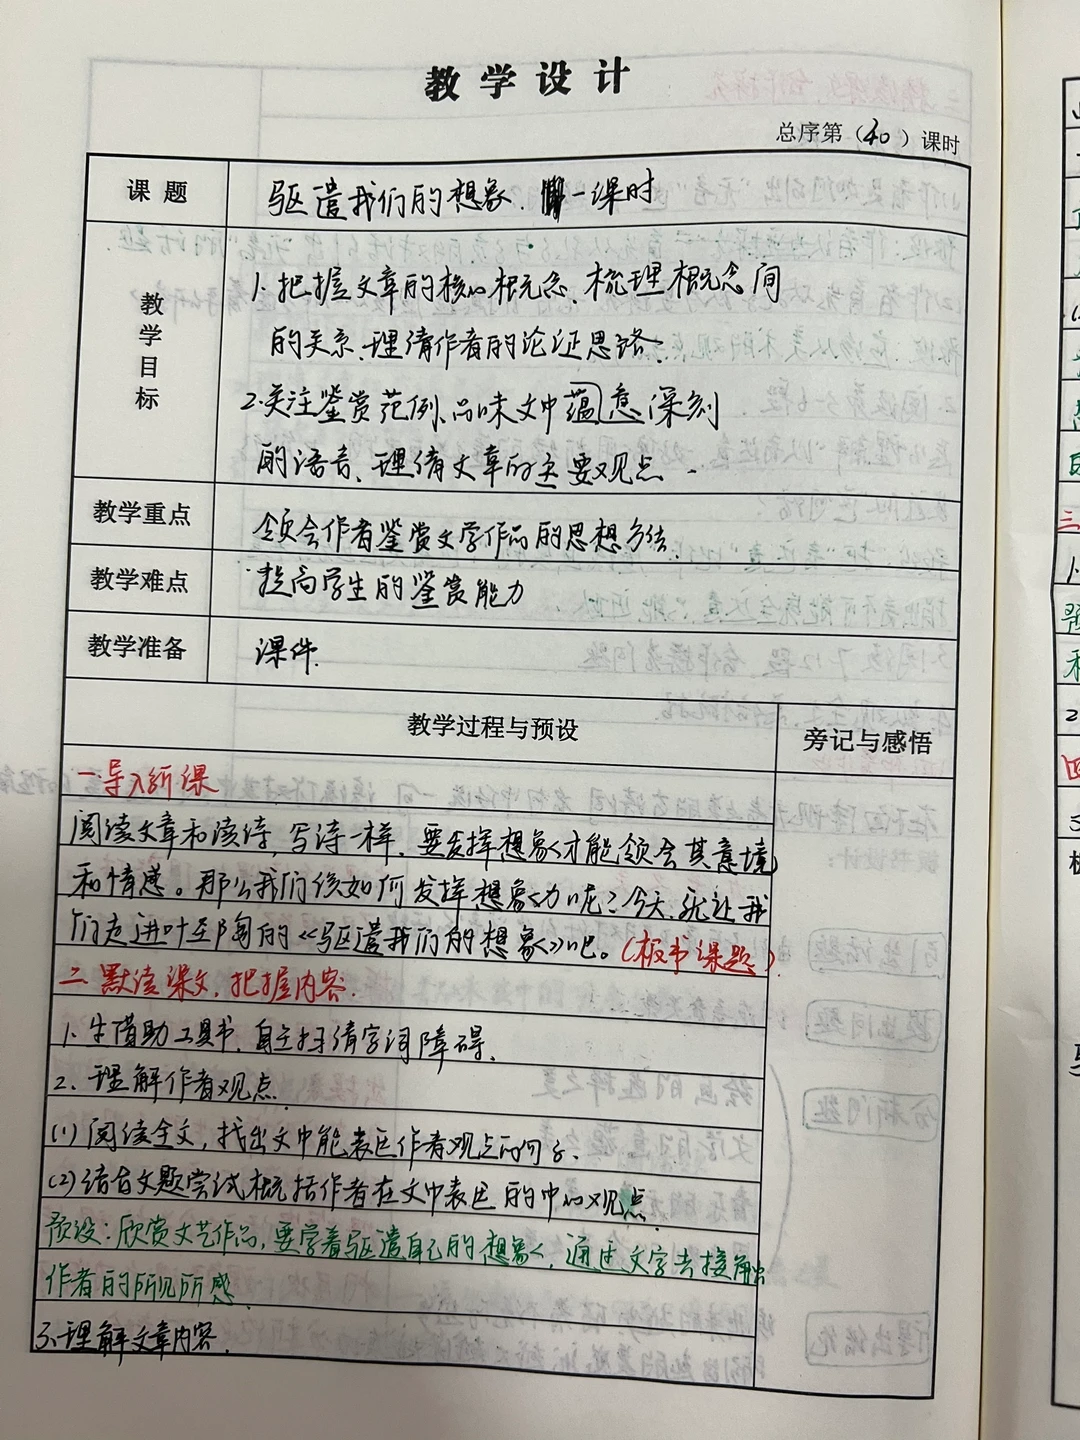 教学设计
总序第（40）课时
课题
驱遣我们的想象. 一课时
教学目标
1.把握文章的核心概念、梳理概念间
的关系、理清作者的论证思路；
2.关注鉴赏范例、品味文中蕴意深刻
的语言、理清文章的主要观点.
教学重点
领会作者鉴赏文学作品的思想方法.
教学难点
提高学生的鉴赏能力
教学准备
课件.
教学过程与预设
旁记与感悟
一.导入新课
阅读文章和读诗,写诗一样,要发挥想象才能领会其意境
和情感。那么我们该如何发挥想象力呢?今天,就让我
们走进叶圣陶的《驱遣我们的想象》吧。(板书课题)
二.默读课文,把握内容.
1.生借助工具书,自主扫清字词障碍.
2.理解作者观点.
(1)阅读全文,找出文中能表达作者观点的句子.
(2)结合文题尝试概括作者在文中表达的中心观点.
预设:欣赏文艺作品,要学着驱遣自己的想象,通过文字去接触
作者的所见所感.
3.理解文章内容.